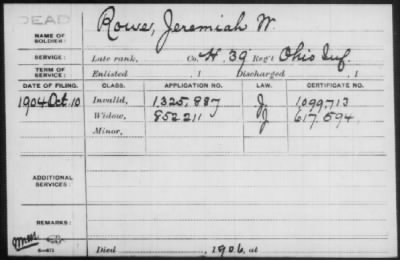 DEAD
NAME OF SOLDIER: Rowe, Jeremiah W.
SERVICE: Late rank, Co. H, 39 Reg't Ohio Inf.
TERM OF SERVICE: Enlisted , 1 Discharged , 1
DATE OF FILING. CLASS. APPLICATION NO. LAW. CERTIFICATE NO.
1904 Oct. 10 Invalid, 1,325,887 J. 1,099,713
Widow, 852211 J 617,594
Minor,
ADDITIONAL SERVICES:
REMARKS:
Died , 1906, at